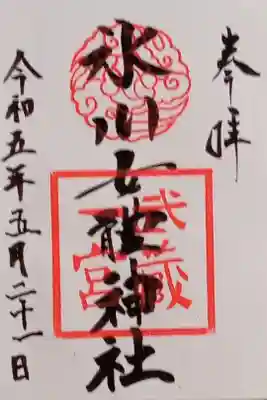 奉拝
氷川女體神社
武蔵
一宮
令和五年五月二十一日